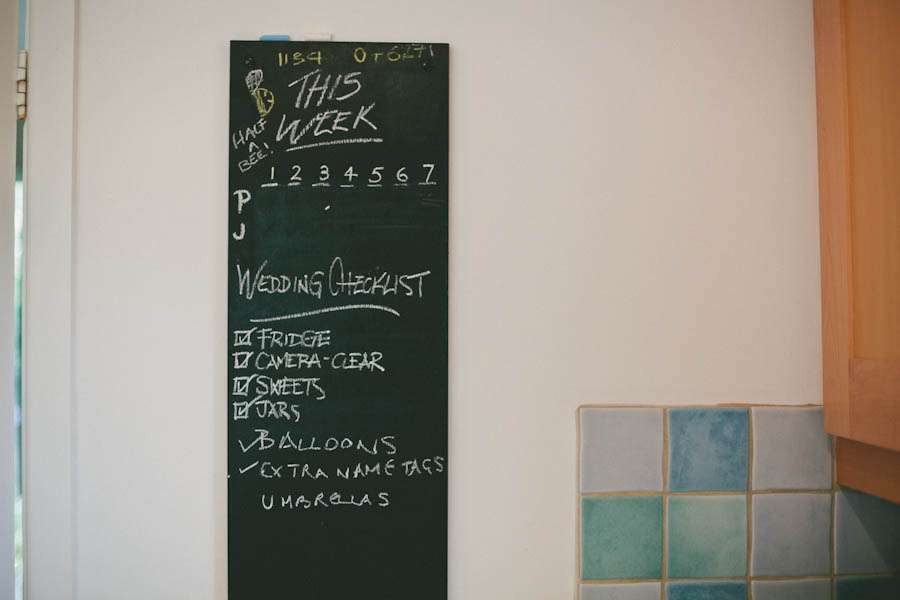 1134
THIS
WEEK
HALF
A
BEE!
1 2 3 4 5 6 7
P
J
WEDDING CHECKLIST
FRIDGE
CAMERA-CLEAR
SWEETS
JARS
BALLOONS
EXTRA NAME TAGS
UMBRELLAS